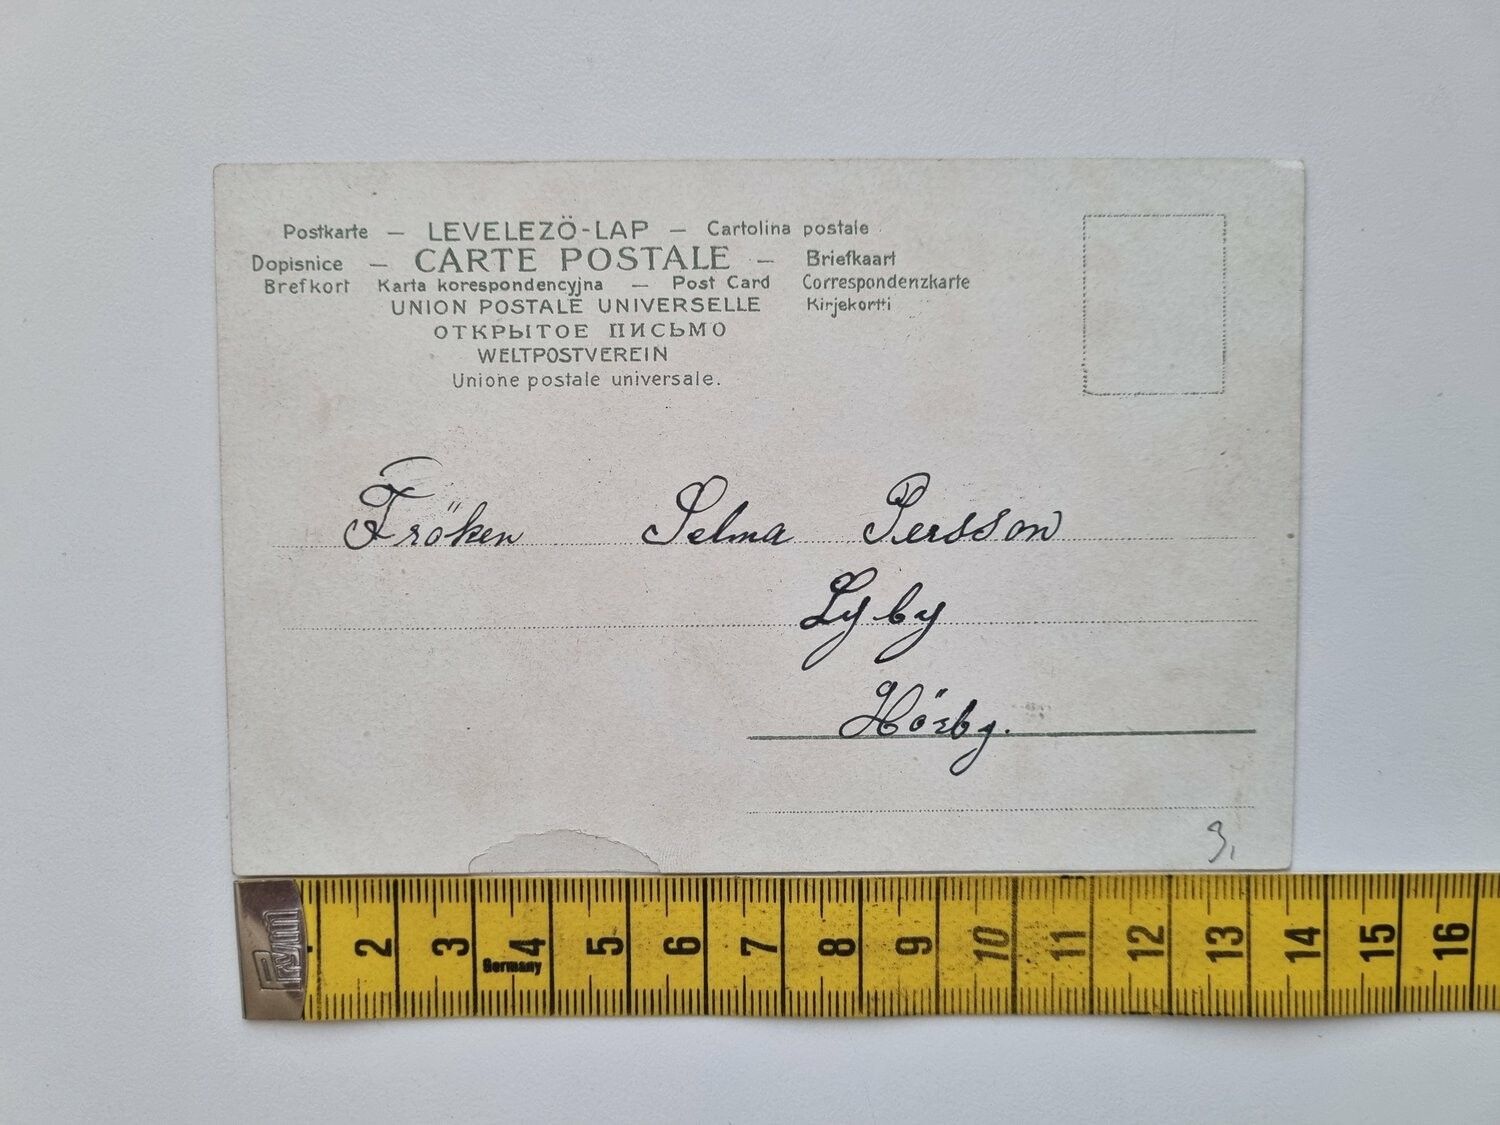 Postkarte – LEVELEZÖ-LAP – Cartolina postale
Dopisnice – CARTE POSTALE – Briefkaart
Brefkort Karta korespondencyjna – Post Card Correspondenzkarte
UNION POSTALE UNIVERSELLE Kirjekortti
ОТКРЫТОЕ ПИСЬМО
WELTPOSTVEREIN
Unione postale universale.
Fröken Selma Persson
Lyby
Hörby.
3,
Prym
2 3 4 5 6 7 8 9 10 11 12 13 14 15 16
Germany